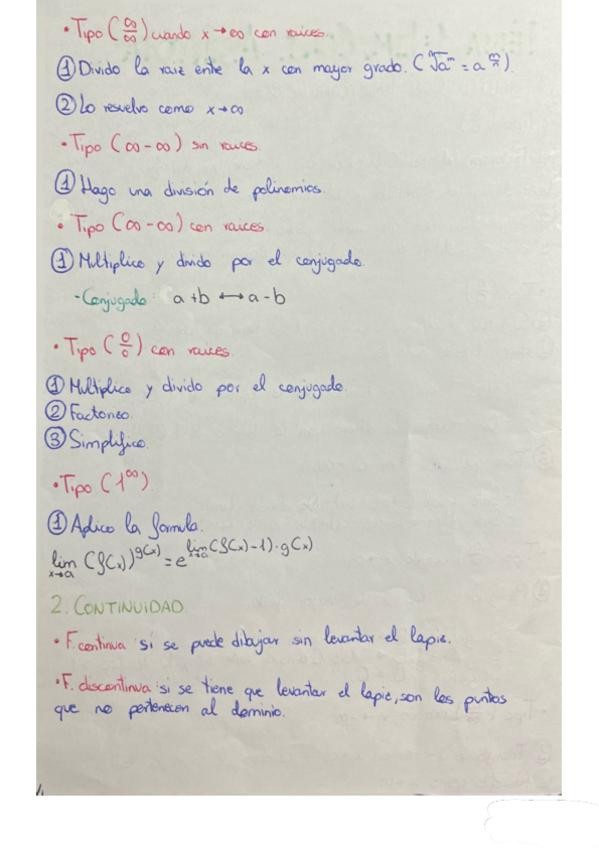 • Tipo (∞/∞) cuando x→∞ con raices.
① Divido la raiz entre la x con mayor grado. (ⁿ√aᵐ = a^(m/n)).
② Lo resuelvo como x→∞
• Tipo (∞-∞) sin raices.
① Hago una división de polinomios.
• Tipo (∞-∞) con raices.
① Multiplico y divido por el conjugado.
- Conjugado: a+b ⟷ a-b
• Tipo (0/0) con raices.
① Multiplico y divido por el conjugado.
② Factorizo.
③ Simplifico.
• Tipo (1^∞)
① Aplico la formula.
lim x→a (f(x))^g(x) = e^(lim x→a (f(x)-1)·g(x))
2. CONTINUIDAD
• F. continua si se puede dibujar sin levantar el lapiz.
• F. discontinua: si se tiene que levantar el lapiz, son los puntos
que no pertenecen al dominio.